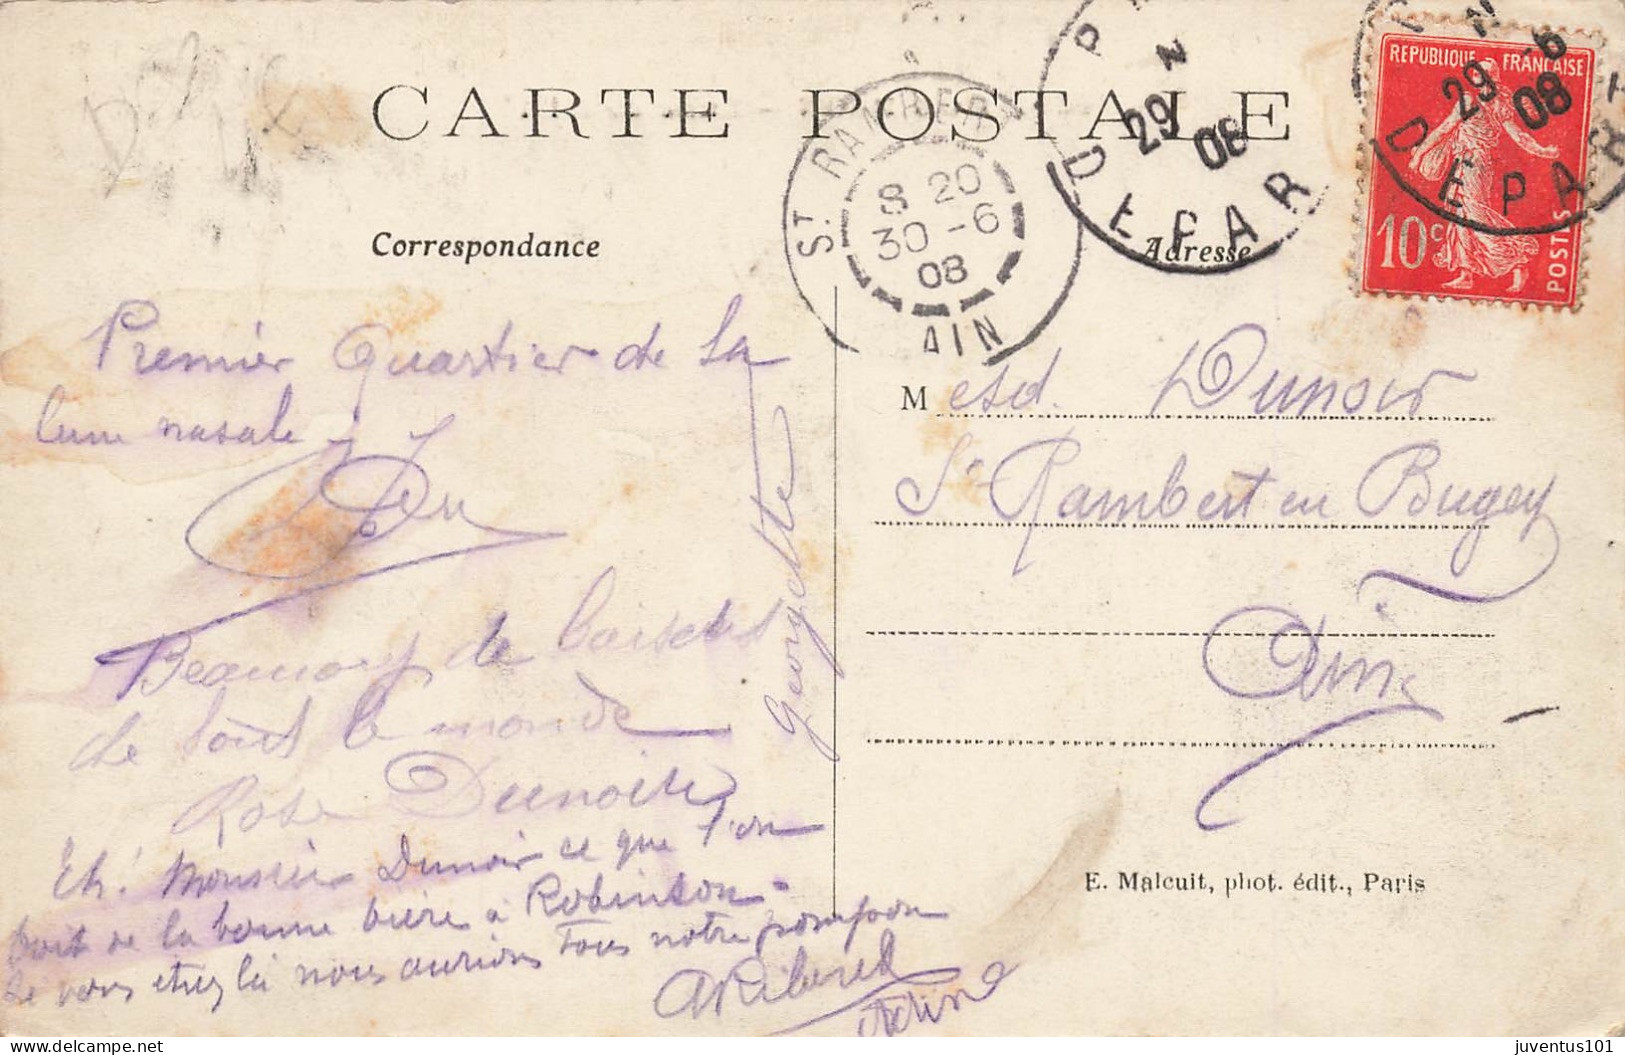 CARTE POSTALE
Correspondance
Adresse
ST RAMBERT
8 20
30 -6
08
AIN
29
08
DEPAR
29 -6
08
DEPAR
REPUBLIQUE FRANÇAISE
10c
POSTES
Premier Quartier de la
lune nasale
Beaucoup de baisers
de tout le monde
Rose Dunoir
Georgette
Eh! Monsieur Dunoir ce que l'on
boit de la bonne bière à Robinson
Se vous étiez là nous aurions tous notre pompon
Mesd. Dunoir
St Rambert en Bugey
Ain
E. Malcuit, phot. édit., Paris
juventus101